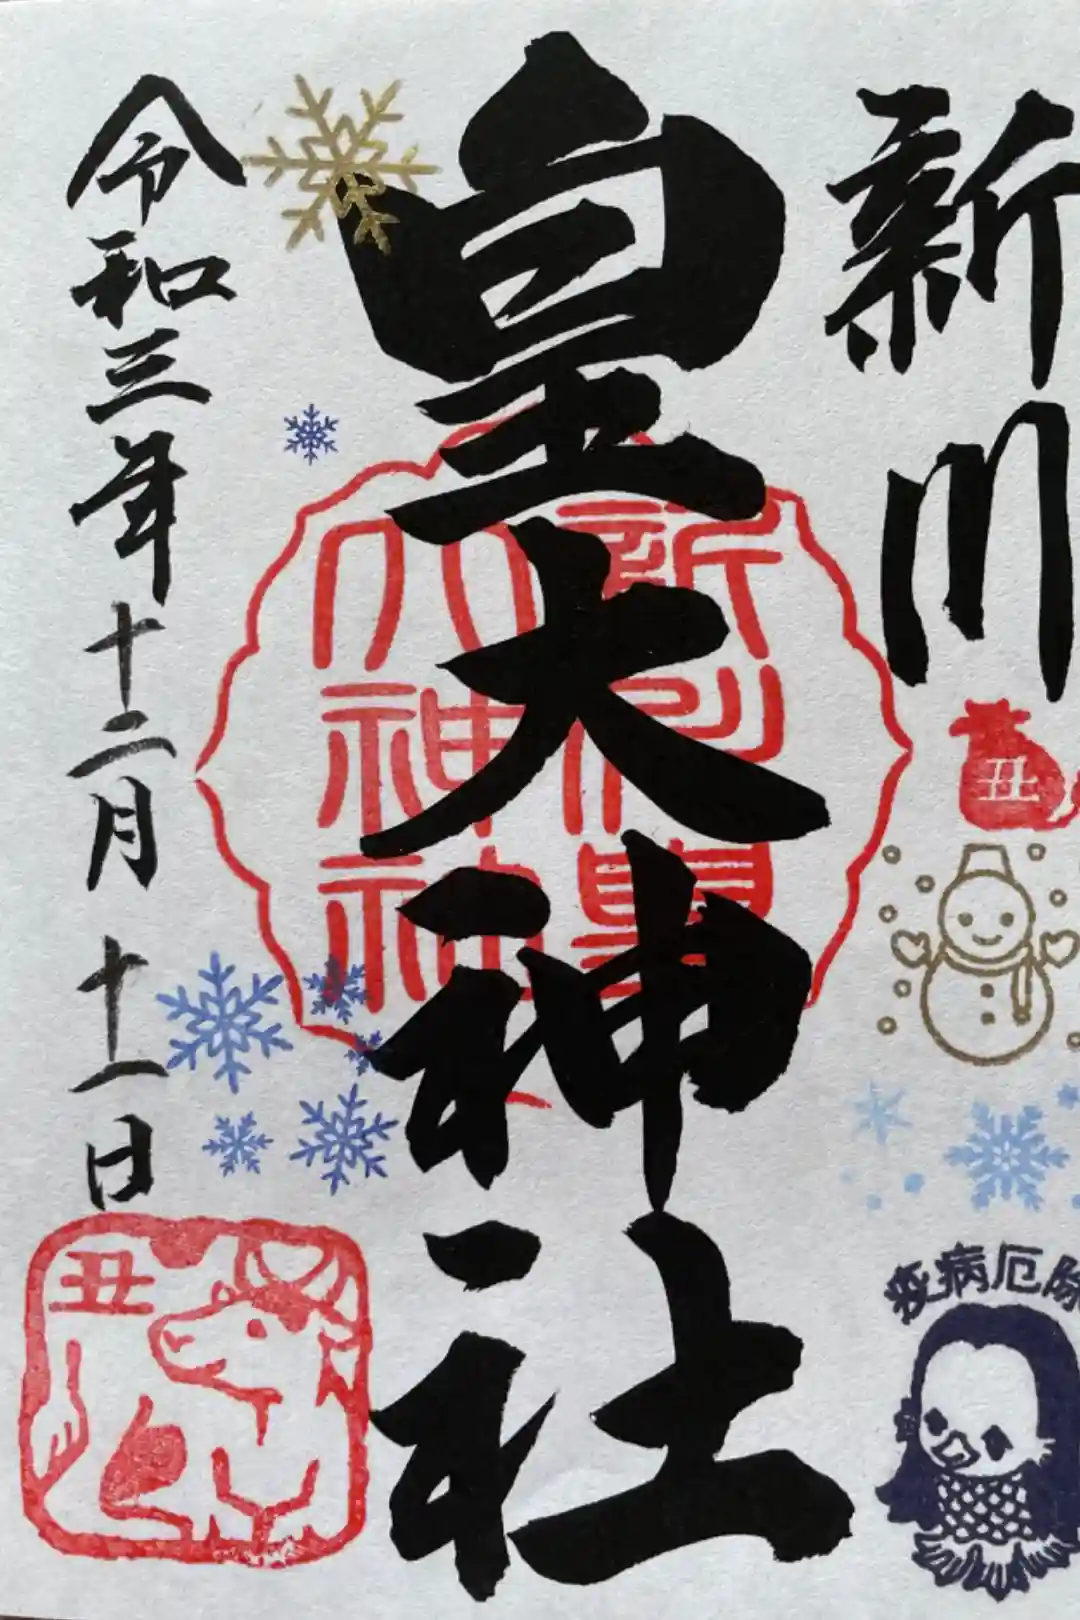 新川
丑
疫病厄除
皇大神社
新川皇
大神社
令和三年十二月十一日
丑